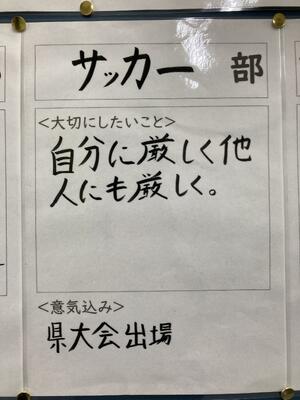 サッカー 部
<大切にしたいこと>
自分に厳しく他
人にも厳しく。
<意気込み>
県大会出場